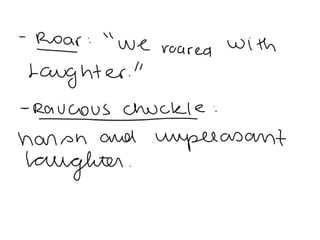 - Roar: "We roared with
Laughter."
- Raucous chuckle:
harsh and unpleasant
laughter.